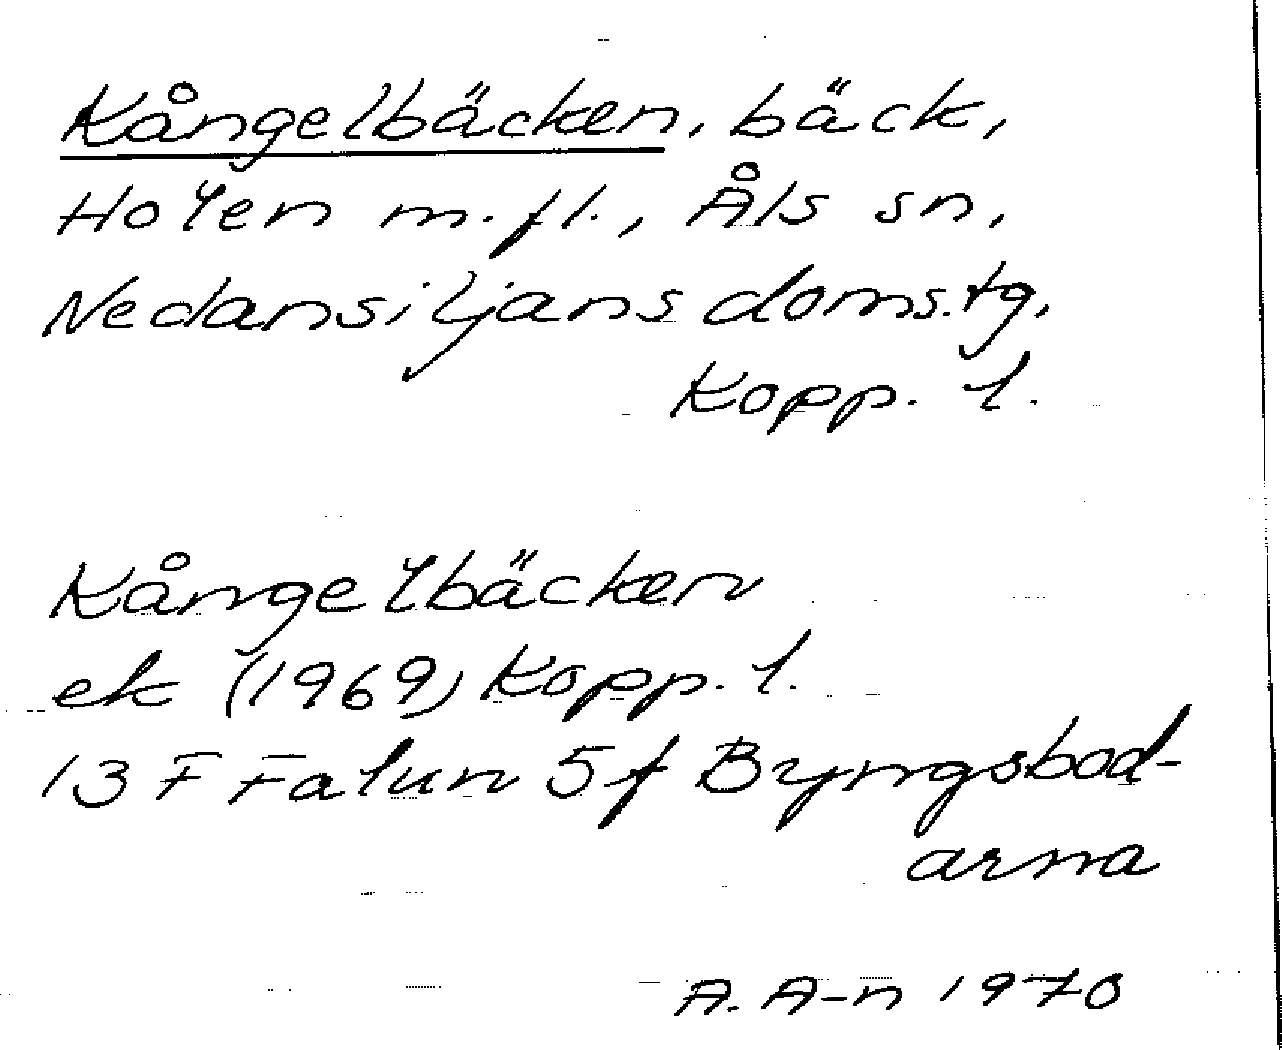 Kångelbäcken, bäck,
Holen m.fl., Åls sn,
Nedansiljans doms.tg,
Kopp. l.
Kångelbäcken
ek (1969) Kopp. l.
13 F Falun 5f Byngsbod-
arna
A. A-n 1970